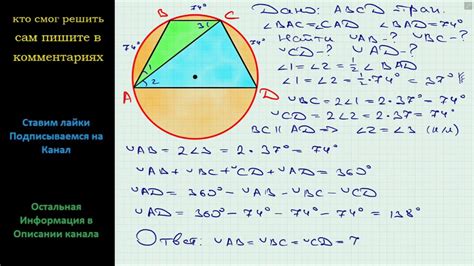 кто смог решить
сам пишите в
комментариях
Ставим лайки
Подписываемся на
Канал
Остальная
Информация в
Описании канала
74°
B
C
74°
3
74°
1
2
A
D
Дано: ABCD - трап.
∠BAC=∠CAD ∠BAD=74°
Найти ◡AB-? ◡BC-?
◡CD-? ◡AD-?
∠1=∠2=½∠BAD
∠1=∠2=½·74°=37°
◡BC=2∠1=2·37°=74°
◡CD=2∠2=2·37°=74°
BC∥AD → ∠2=∠3 (н/л)
◡AB=2∠3=2·37°=74°
◡AB+◡BC+◡CD+◡AD=360°
◡AD=360°-◡AB-◡BC-◡CD
◡AD=360°-74°-74°-74°=138°
Ответ: ◡AB=◡BC=◡CD=7